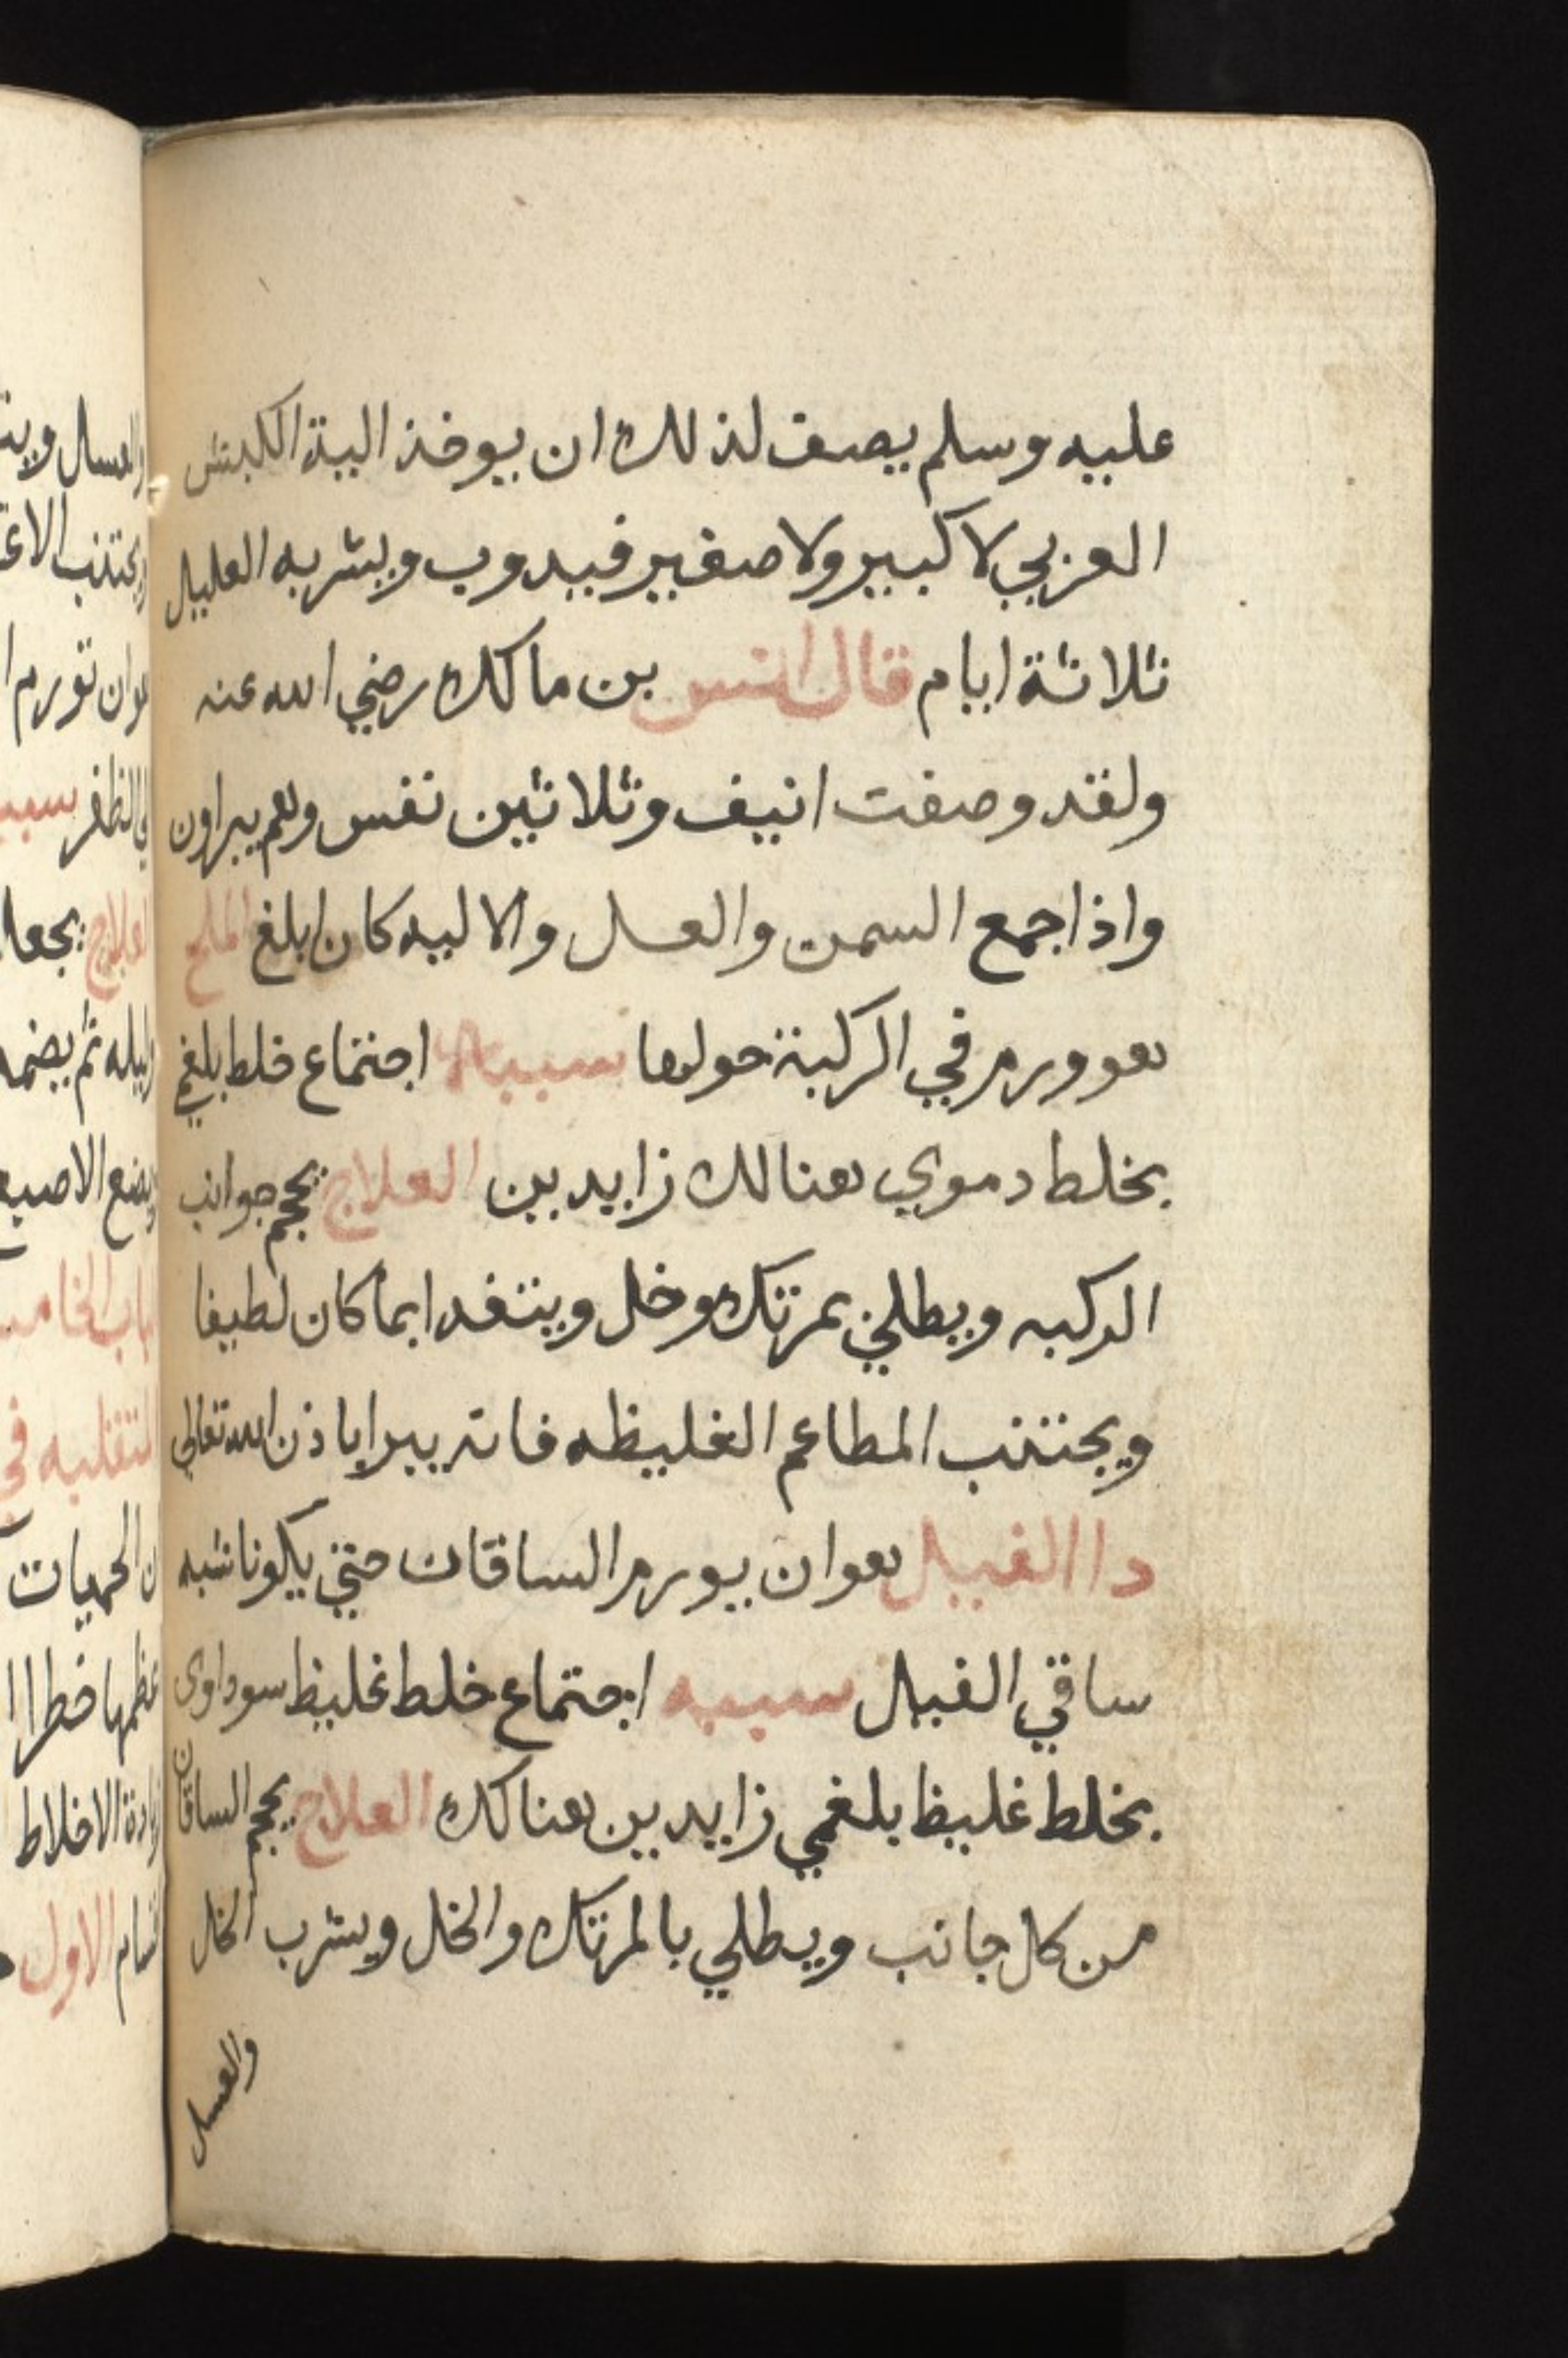 عليه وسلم يصف لذلك ان يوخذ الية الكبش
العربي لا كبير ولا صغير فيدوب ويشربه العليل
ثلاثة ايام قال انس بن مالك رضي الله عنه
ولقد وصفت انيف وثلاثين نفس وهم يبراون
واذا جمع السمن والعسل والاليه كان ابلغ الملح
هو ورم في الركبة حولها سببه اجتماع خلط بلغمي
بخلط دموي هنالك زايدين العلاج يحجم جوانب
الركبه ويطلي بمرتك وخل ويتغدا بما كان لطيفا
ويجتنب المطاعم الغليظه فانه يبرا باذن الله تعالى
دا الفيل هو ان يورم الساقان حتي يكونا شبه
ساقي الفيل سببه اجتماع خلط غليظ سوداوى
بخلط غليظ بلغمي زايدين هناك العلاج يحجم الساقان
من كل جانب ويطلي بالمرتك والخل ويشرب الخل
والعسل